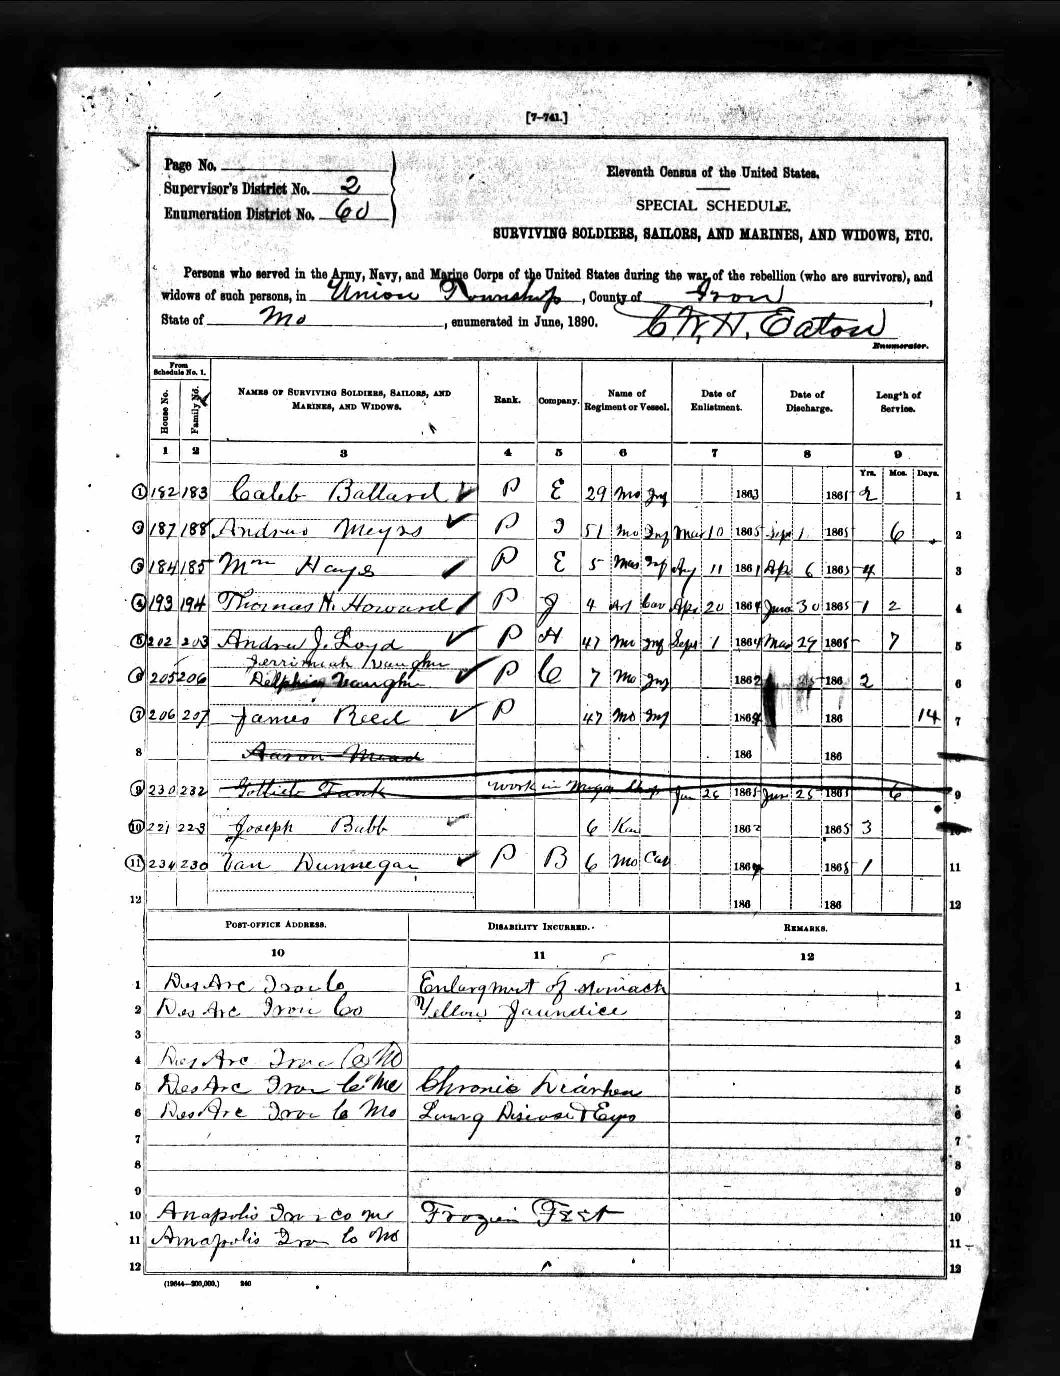 [7-741.]
Page No.
Supervisor's District No. 2
Enumeration District No. 60
Eleventh Census of the United States.
SPECIAL SCHEDULE.
SURVIVING SOLDIERS, SAILORS, AND MARINES, AND WIDOWS, ETC.
Persons who served in the Army, Navy, and Marine Corps of the United States during the war of the rebellion (who are survivors), and
widows of such persons, in Union Township, County of Iron,
State of Mo, enumerated in June, 1890. C W. H. Eaton
Enumerator.
From Schedule No. 1.
House No. Family No. NAMES OF SURVIVING SOLDIERS, SAILORS, AND MARINES, AND WIDOWS. Rank. Company. Name of Regiment or Vessel. Date of Enlistment. Date of Discharge. Length of Service.
1 2 3 4 5 6 7 8 9
Yrs. Mos. Days.
1 182 183 Caleb Ballard P E 29 Mo Inf 1863 1865 2 1
2 187 188 Andrew Meyrs P I 51 Mo Inf Mar 10 1865 Sept 1 1865 6 2
3 184 185 Wm Hays P E 5 Mo Inf 11 1861 Apr 6 1865 4 3
4 193 194 Thomas H. Howard P J 4 Cav Apr 20 1864 June 30 1865 1 2 4
5 202 203 Andrew J. Loyd P H 47 Mo Inf Sept 1 1864 Mar 29 1865 7 5
Jerrimiah Vaughn
6 205 206 Delphia Vaughn P C 7 Mo Inf 1862 186 2 6
7 206 207 James Reed P 47 Mo Inf 1864 186 14 7
8 Aaron Mead 186 186
9 230 232 Gottieb Frank Work in Shop Jan 26 1865 Jun 25 1865 6 9
10 221 223 Joseph Bubb 6 Kan 1862 1865 3 10
11 234 230 Van Dunnegan P B 6 Mo Cav 1864 1865 1 11
12 186 186 12
POST-OFFICE ADDRESS. DISABILITY INCURRED. REMARKS.
10 11 12
1 Des Arc Iron Co Enlargmut of stomach 1
2 Des Arc Iron Co Yellow Jaundice 2
3 3
4 Des Arc Iron Co Mo 4
5 Des Arc Iron Co Mo Chronic Diarhea 5
6 Des Arc Iron Co Mo Lung Disease & Eys 6
7 7
8 8
9 9
10 Anapolis Iron Co Mo Frozen Feet 10
11 Annapolis Iron Co Mo 11
12 12
(19644—200,000.) 240